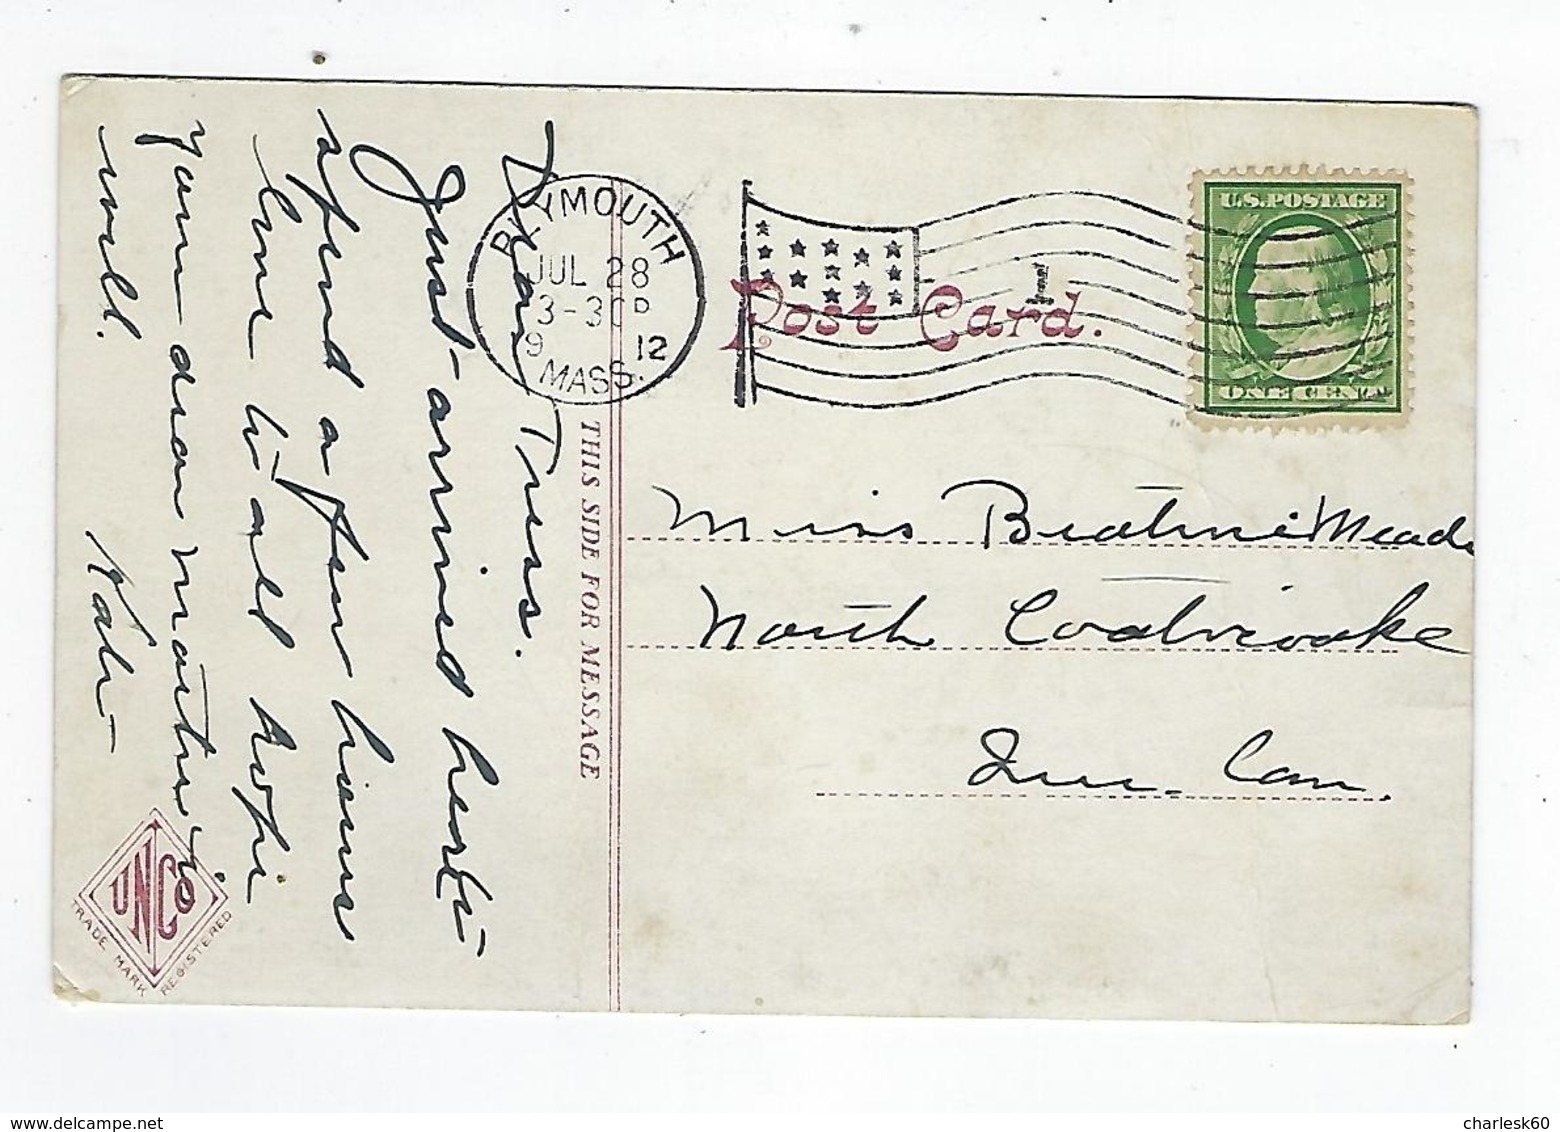 Dear Tress.
Just arrived here to
spend a few hours
Love to all hope
your dear mother is
well.
Kate
PLYMOUTH
JUL 28
3-30P
1912
MASS.
1
Post Card.
U.S.POSTAGE
ONE CENT
THIS SIDE FOR MESSAGE
Miss Beatrice Meade
North Coaticooke
Que. Can.
UNCO
TRADE MARK REGISTERED
charlesk60